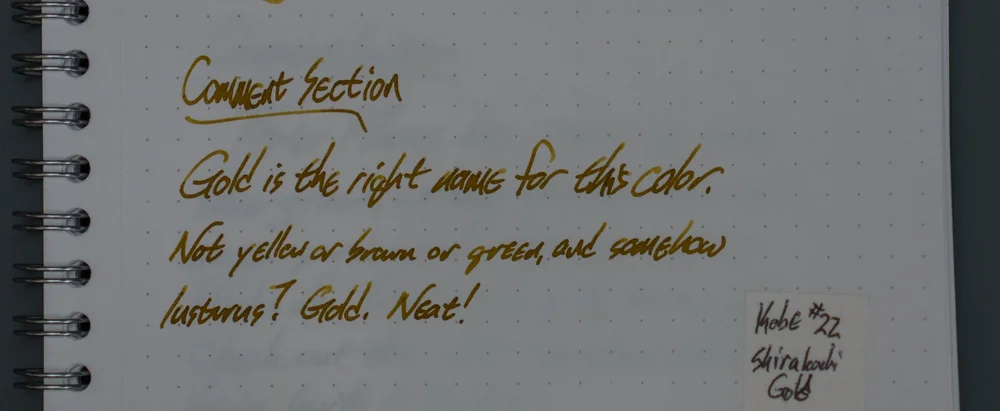 Comment Section
Gold is the right name for this color.
Not yellow or brown or green, and somehow
lusturus? Gold. Neat!
Kobe #22
Shirakabi
Gold